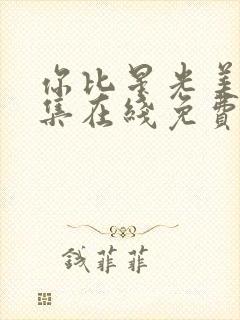 你比星光美
集在线免费
钱菲菲